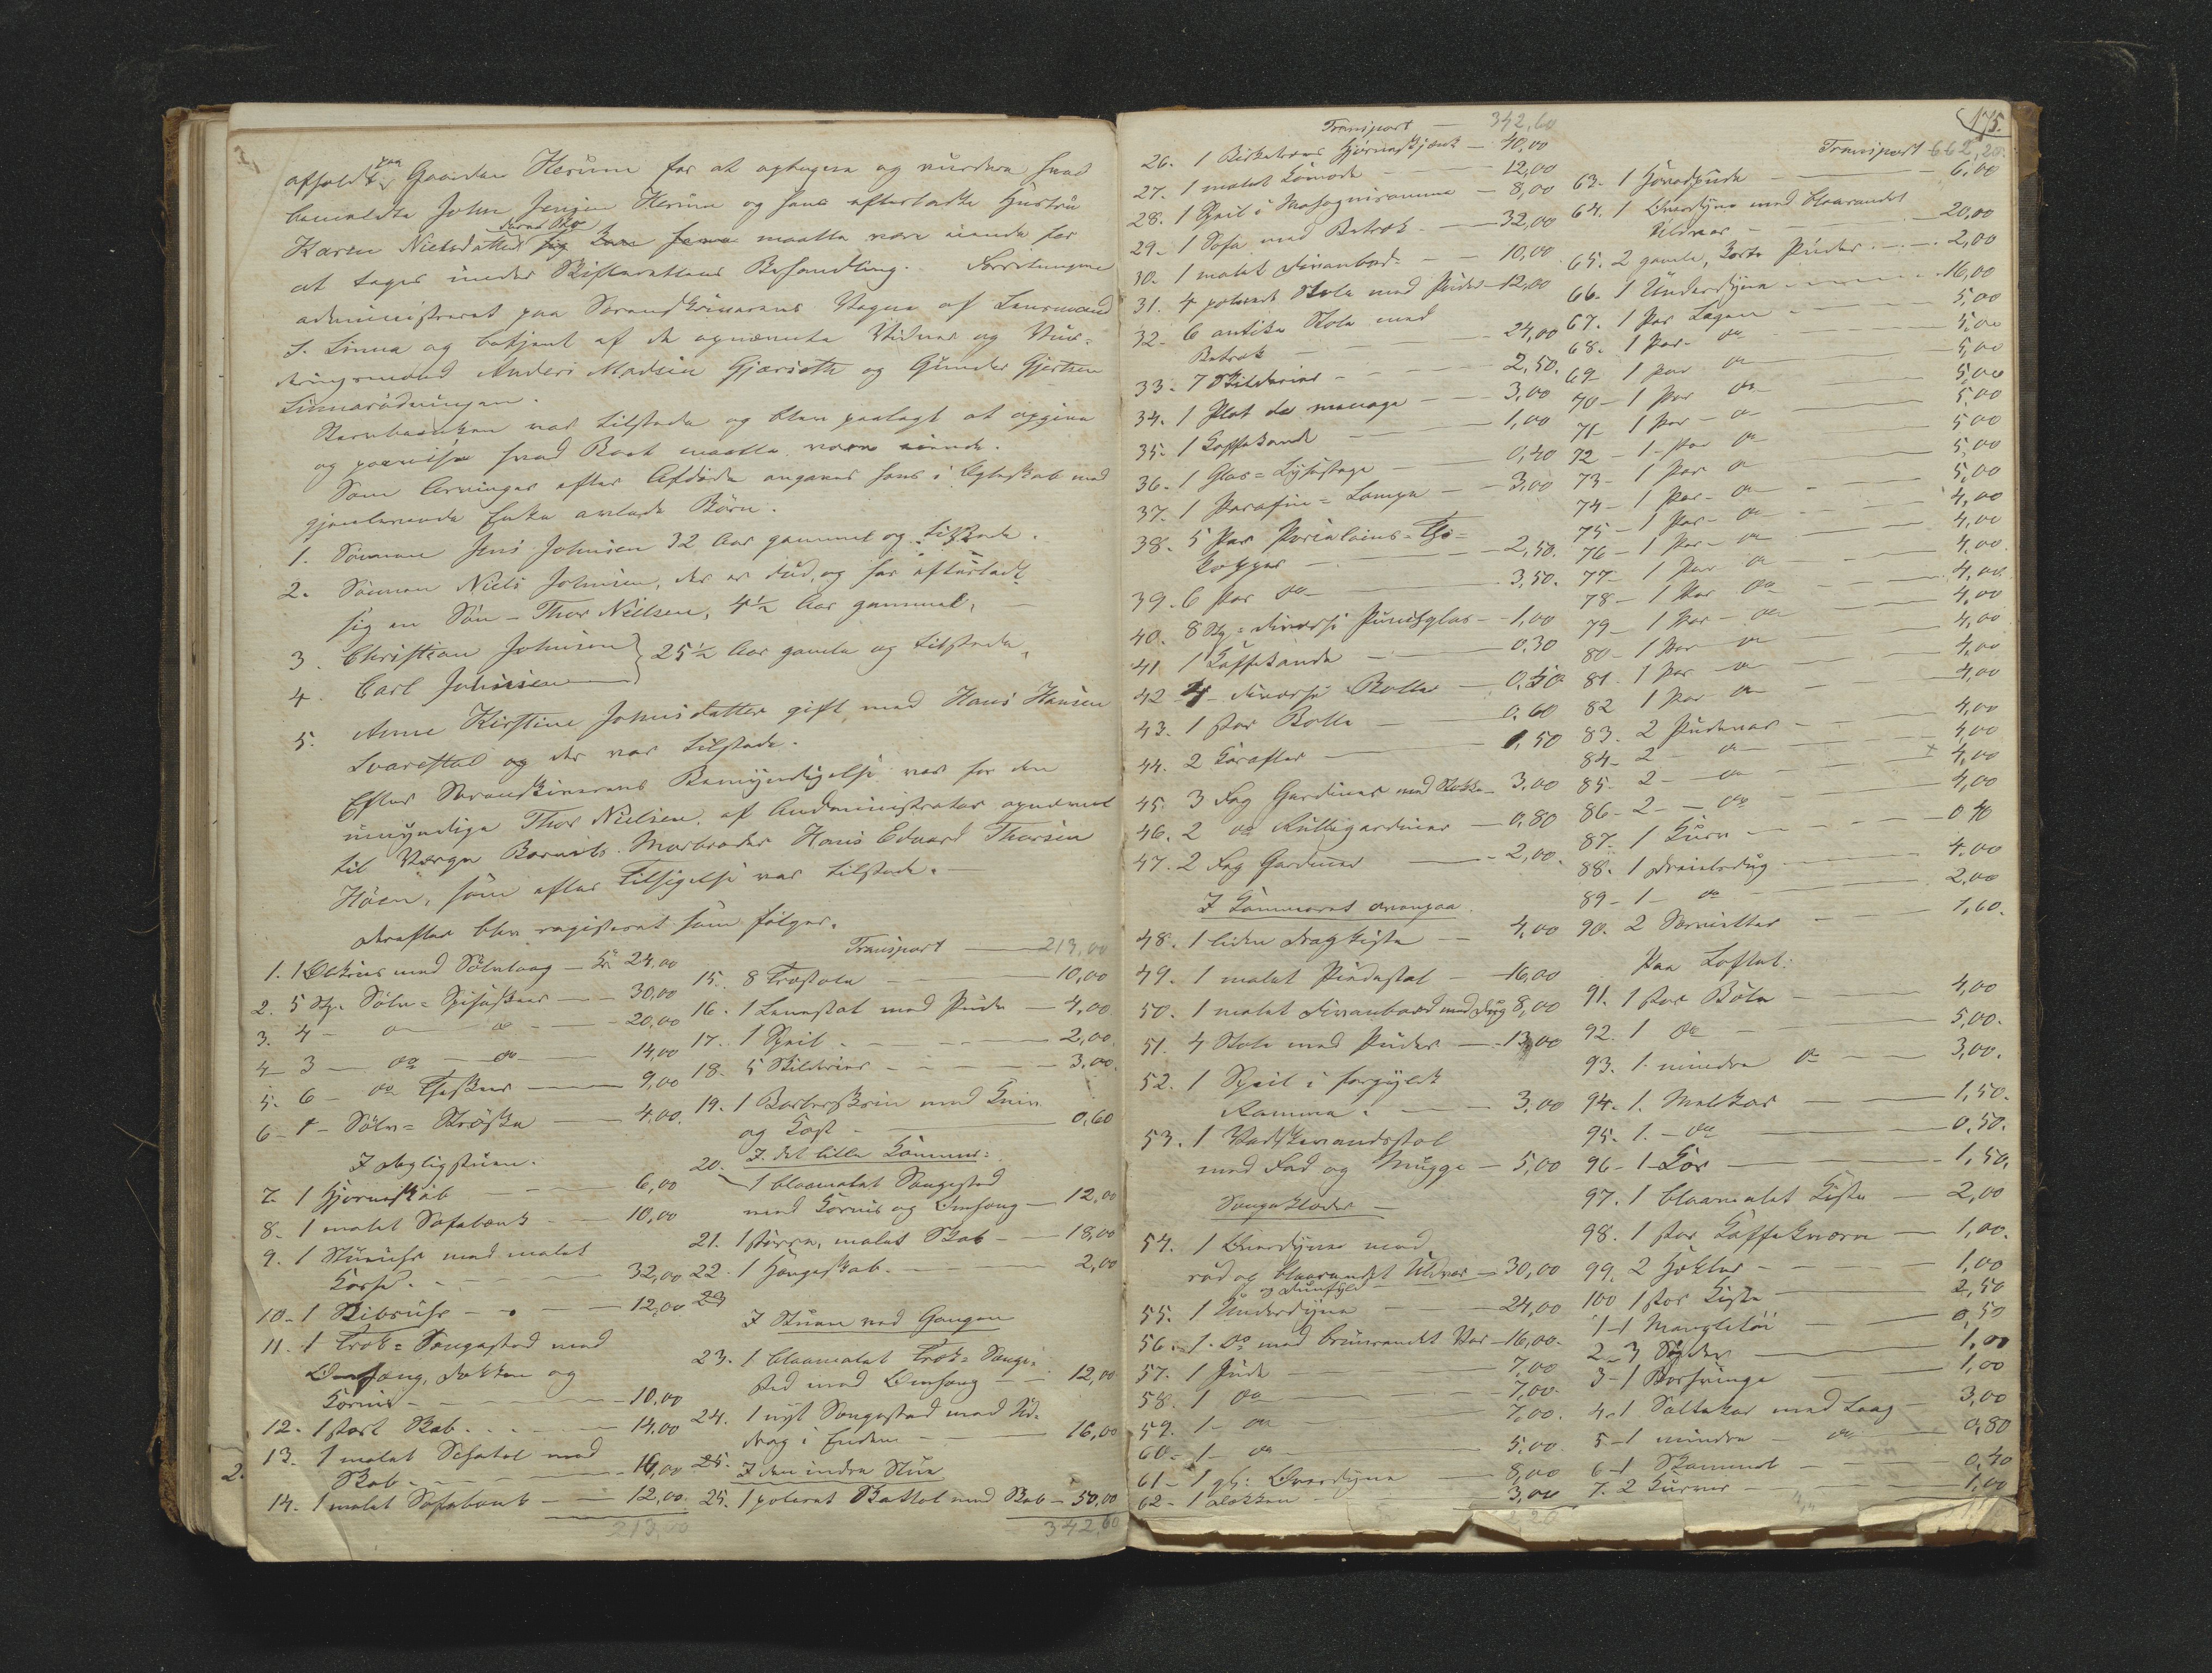 afholdt paa Gaarden Herum for at optegne og vurdere hvad
bemeldte John Jensen Herum og hans efterladte Hustru
Karen Nielsdatter maatte være eiende for
at tages under Skifterettens Behandling. Forretningen
administreret paa Sorenskriverens Vegne af Lensmand
S. Linna og betjent af de opnævnte Vidner og Vur-
deringsmænd Anders Madsen Gjærseth og Gunder Gjertsen
Linnasrødningen.
Stervboenken var tilstede og blev paalagt at opgive
og paavise hvad Boet maatte være eiende.
Som Arvinger efter Afdøde angaves hans i Ægteskab med
gjenlevende Enke avlede Børn.
1. Sønnen Jens Johnsen 32 Aar gammel og tilstede.
2. Sønnen Niels Johnsen, der er død, og har efterladt
sig en Søn - Thor Nielsen, 4½ Aar gammel,
3. Christian Johnsen } 25½ Aar gamle og tilstede,
4. Carl Johnsen
5. Anne Kirstine Johnsdatter gift med Hans Hansen
Svarestal og der var tilstede.
Efter Sorenskriverens Bemyndigelse var for den
umyndige Thor Nielsen af Administrator opnævnt
til Værge Barnets Morbroder Hans Edvard Thorsen
Höen, som efter Tilsigelse var tilstede. -
Derefter blev registreret som følger.
1. 1 Ølkrus med Sölvlaag - Kr. 24,00
2. 5 Stk. Sölv=Spiseskeer - 30,00
3. 4 - do - do - 20,00
4 - 3 - do - do - 14,00
5. 6 - do Theskeer - 9,00
6 - 1 - Sölv=Ströske - 4,00.
I Dagligstuen.
7. 1 Hjørneskab - 6,00
8. 1 malet Sofabænk - 10,00
9. 1 Stueuhr med malet
Kasse. - 32,00
10 - 1 Skibsuhr - 12,00
11. 1 Træk=Sengested med
Omhang, Dække og
Kornis - 10,00
12. 1 stort Skab. - 14,00
13. 1 malet Schatol med
Skab - 16,00
14. 1 malet Sofabænk - 12,00.
213,00
Transport - 213,00
15. 8 Træstole - 10,00
16. 1 Lænestol med Pude - 4,00
17. 1 Speil - 2,00.
18. 5 Skilderier - 3,00.
19. 1 Barberskrin med Kniv
og Kost - 0,60
20. I det lille Kammer:
1 blaamalet Sengested
med Kornis og Omhang - 12,00
21. 1 større, malet Skab - 18,00
22. 1 Hængeskab. - 2,00
23
I Stuen ved Gangen
23. 1 blaamalet Træk=Senge-
sted med Omhang - 12,00
24. 1 nyt Sengested med Ud-
drag i Enden - 16,00
25. I den indre Stue
25. 1 poleret Skattol med Skab - 50,00
342,60
175.
Transport - 342,60
26. 1 Birketræs Hjørneskjænk - 40,00
27. 1 malet Komode - 12,00
28. 1 Speil i Mahogniramme - 8,00
29. 1 Sofa med Betræk - 32,00
30. 1 malet Divanbord - 10,00
31. 4 polerede Stole med Puder - 12,00
32. 6 antike Stole med
Betræk - 24,00
33. 7 Skilderier - 2,50.
34. 1 Plat de menage - 3,00
35. 1 Kaffekande - 1,00
36. 1 Glas=Lysestage - 0,40
37. 1 Parafin=Lampe - 3,00
38. 5 Par Porcelains=The=
kopper - 2,50.
39. 6 Par do - 3,50.
40. 8 Stk. diverse Punchglas - 1,00
41. 1 Kaffekande - 0,30
42 - 4 - diverse Boller - 0,50
43. 1 stor Bolle - 0,60
44. 2 Karafler - 1,50
45. 3 Fag Gardiner med Stokke - 3,00
46. 2 do Rullegardiner - 0,80
47. 2 Fag Gardiner - 2,00.
I Kammeret ovenpaa.
48. 1 liden Dragkiste - 4,00
49. 1 malet Pindestol - 16,00
50. 1 malet Divanbord med Dug 8,00
51. 4 Stole med Puder - 13,00
52. 1 Speil i forgyldt
Ramme. - 3,00
53. 1 Vadskevandsstol
med Fad og Mugge - 5,00
Sengeklæder -
54. 1 Overdyne med
rød og blaarandet Uldvar - 30,00
og Duunfyld -
55. 1 Underdyne - 24,00
56. - 1. do med brunrandet Var - 16,00.
57. 1 Pude - 7,00
58. 1 do - 7,00.
59. 1 - do - 7,00.
60 - 1 - do - 5,00.
61 - 1 gl. Overdyne - 8,00
62 - 1 Dækken - 3,00
Transport 662,20.
63. 1 Hovedpude - 6,00
64. 1 Overdyne med blaarandet
Uldvar - 20,00
65. 2 gamle, korte Puder - 2,00
66. 1 Underdyne - 16,00
67. 1 Par Lagen - 5,00
68. 1 Par do - 5,00
69 1 Par do - 5,00
70 - 1 Par do - 5,00
71 - 1 Par - do - 5,00
72 - 1 - Par do - 5,00
73 - 1 Par do - 5,00
74 - 1 Par - do - 5,00
75 - 1 Par - do - 4,00
76 - 1 Par - do - 4,00
77 - 1 Par do - 4,00.
78 - 1 Par do - 4,00
79 - 1 Par - do - 4,00
80 - 1 Par do - 4,00
81. 1 Par do - 4,00
82 1 Par do - 4,00
83. 2 Pudevar - 4,00
84 - 2 do - 4,00
85. 2 - do - 4,00
86 - 2 - do - 4,00
87. 1 Kurv - 0,40
88. 1 Dreielsdug - 4,00
89 - 1 - do - 2,00
90. 2 Servietter - 1,60.
Paa Loftet:
91. 1 stor Böle - 4,00
92. 1 do - 5,00.
93. 1. mindre do - 3,00.
94. 1. Meelkar - 1,50.
95. 1. - do - 0,50.
96 - 1 Kar - 1,50.
97. 1 blaamalet Kiste - 2,00
98. 1 stor Kaffekværn - 1,00.
99. 2 Hekler - 1,00
100 1 stor Kiste - 2,50
1 - 1 Mangletöi - 0,50
2 - 3 Sigter - 1,00
3 - 1 - 1,00
4 - 1 Saltekar med Laag - 3,00
5 - 1 mindre do - 0,80
6 - 1 Skammel - 0,40
7. 2 Kurver - 1,00